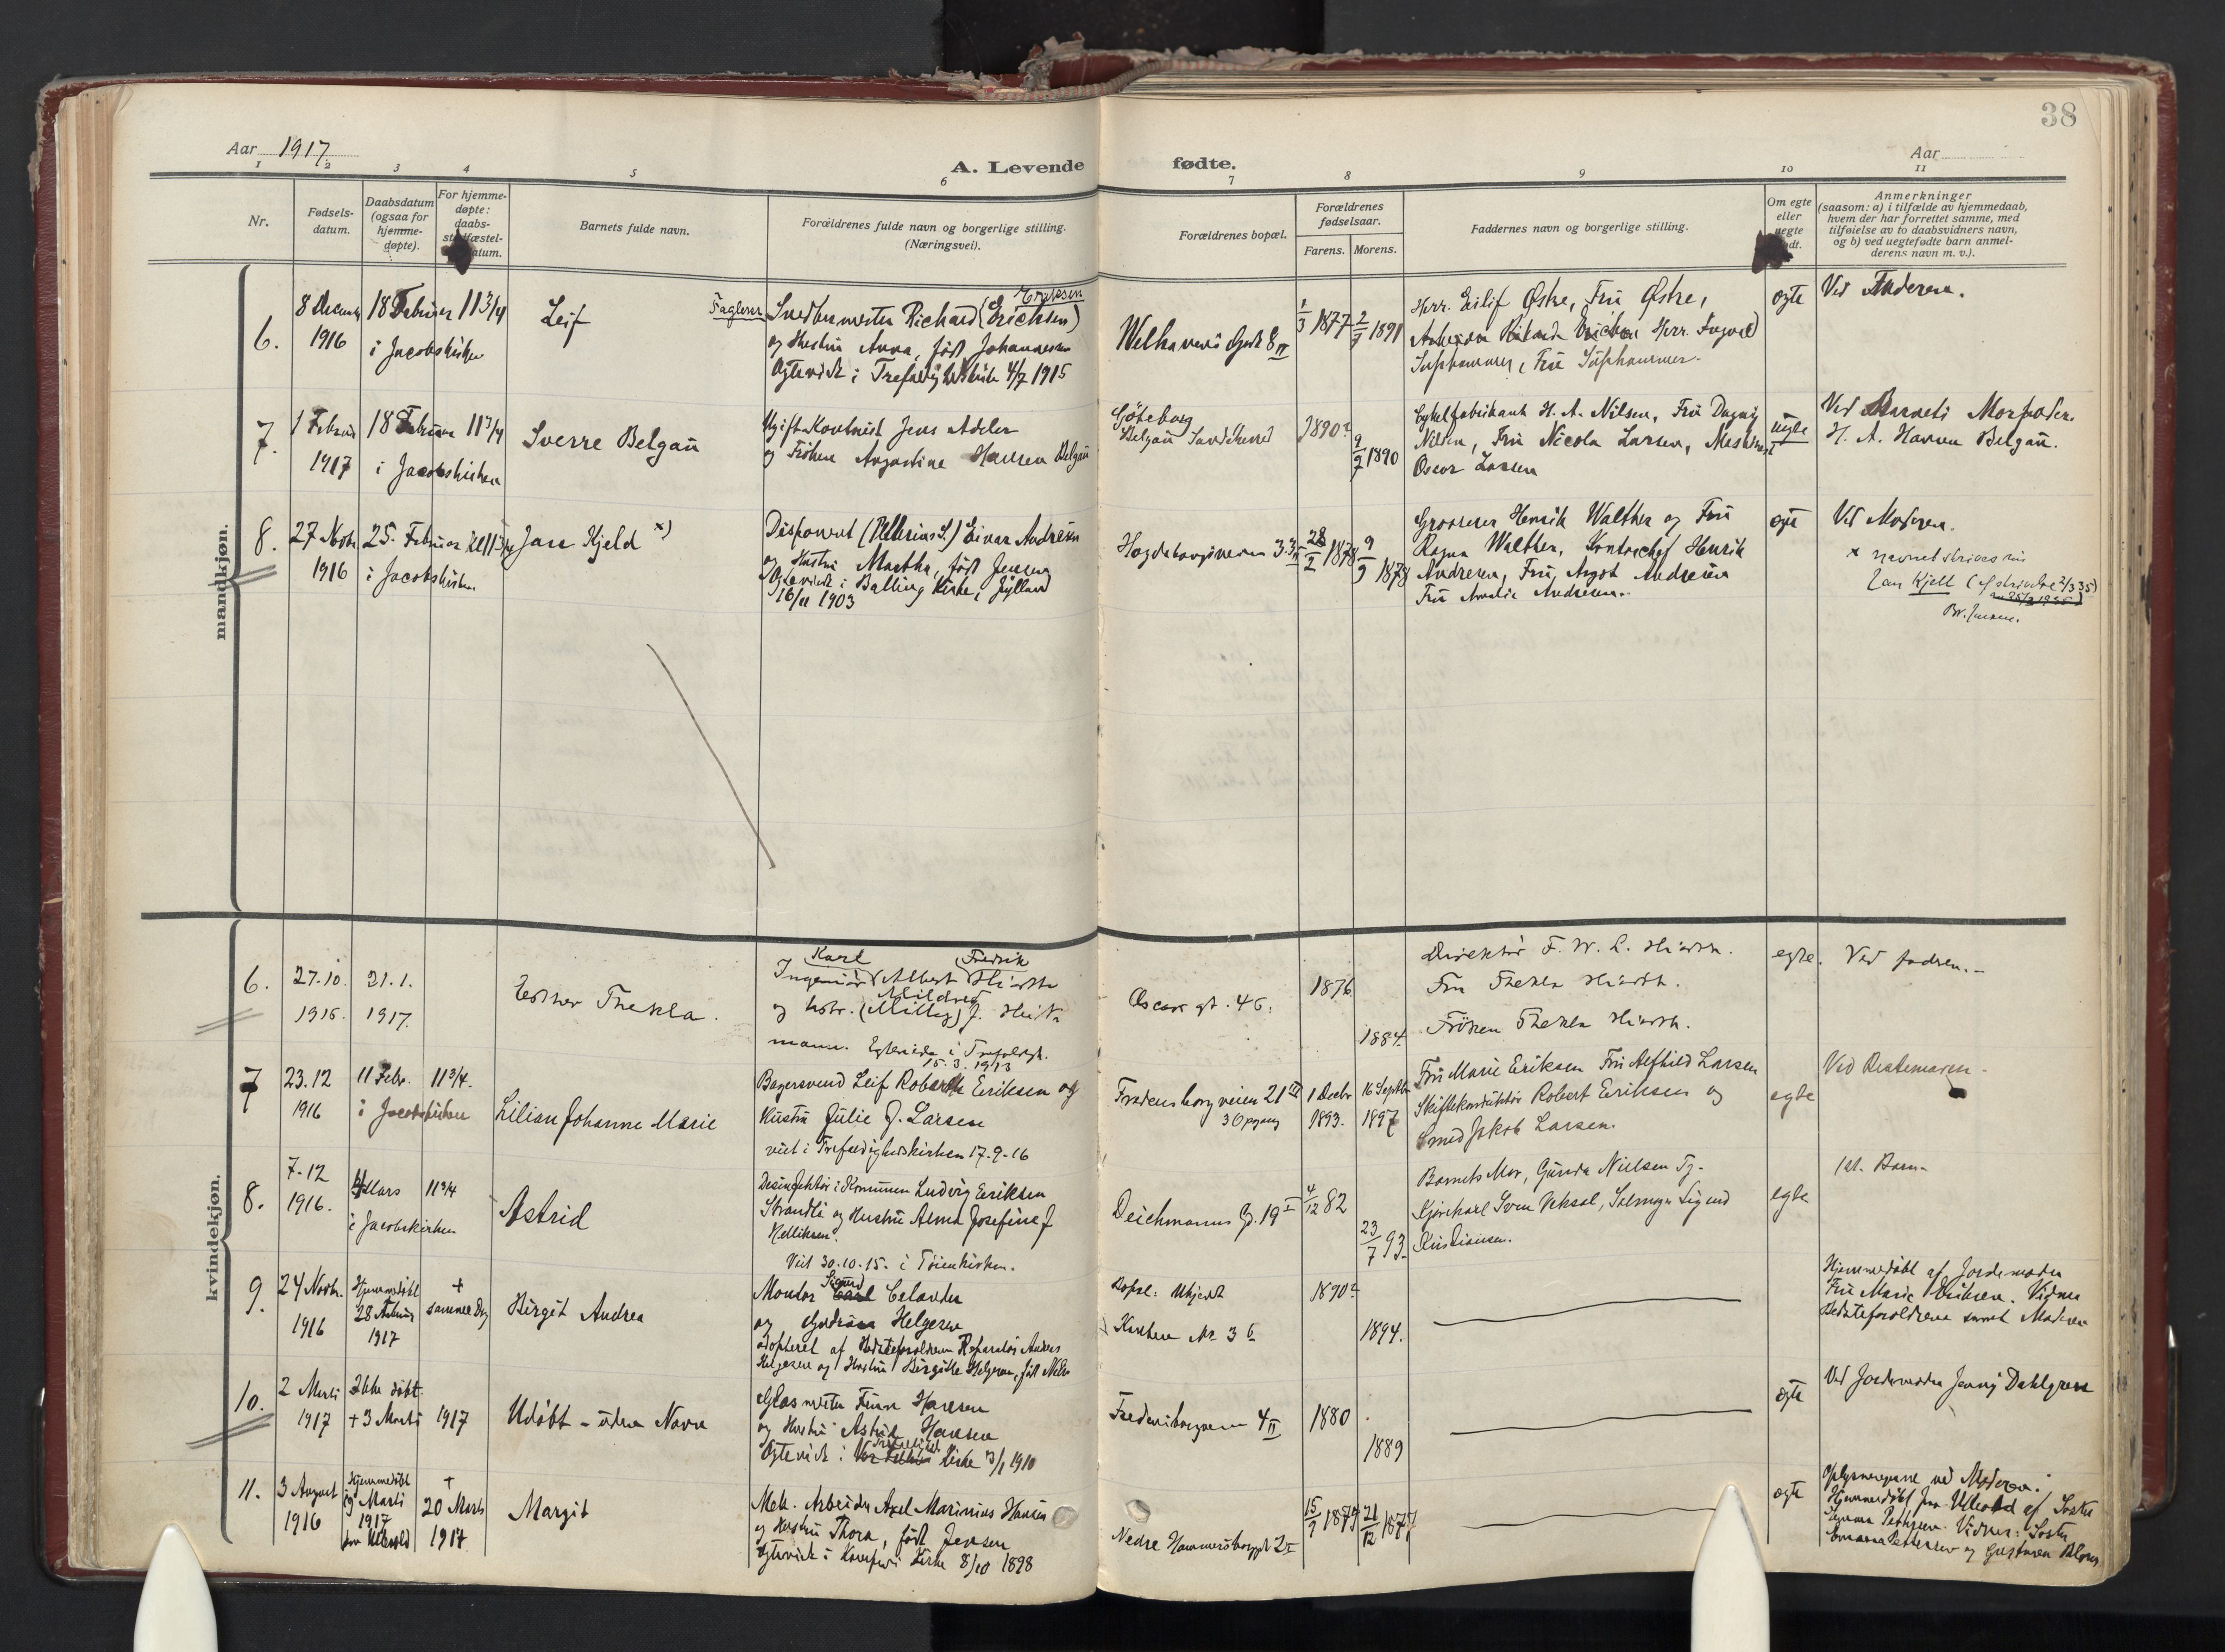 38
Aar 1917
Aar
A. Levende fødte.
1 2 3 4 5 6 7 8 9 10 11
Nr.
Fødsels-
datum.
Daabsdatum
(ogsaa for
hjemme-
døpte).
For hjemme-
døpte:
daabs-
Barnets fulde navn.
Forældrenes fulde navn og borgerlige stilling.
(Næringsvei).
Forældrenes bopæl.
Forældrenes
fødselsaar.
Farens. Morens.
Faddernes navn og borgerlige stilling.
Om egte
eller
uegte
Anmerkninger
(saasom: a) i tilfælde av hjemmedaab,
hvem der har forrettet samme, med
tilføielse av to daabsvidners navn,
og b) ved uegtefødte barn anmel-
derens navn m. v.).
mandkjøn.
6.
8 Decemb
1916
18 Februar 11 3/4
i Jacobskirken
Leif
Faglerer
Eriksen
Snedkermester Richard (Erichsen)
og Hustru Anna, født Johannesen
Ægteviet i Trefoldighetskirke 4/7 1915
Welhavens Gade 8 II
1/3 1877
1891
Herr. Eilif Østre, Fru Østre,
Erichsen Herr. Ingvald
Fru
egte
Ved Faderen.
7.
1 Februar
1917
18 Februar 11 3/4
i Jacobskirken
Sverre Belgau
Ugift Kontorist Jens Adeler
og Frøken Augustine Hansen Belgau
Göteborg
Belgau Sandeherred
1890?
9/9 1890
Cykelfabrikant H. A. Nilsen, Fru Dagny
Nilsen, Fru Nicola Larsen, Maskinist
Oscar Larsen
uegte
Ved Barnets Morfader.
H. A. Hansen Belgau.
8.
27 Novbr
1916
25. Februar Kl 11 3/4
i Jacobskirken
Jan Kjeld x)
Disponent (Petterius S.) Einar Andresen
og Hustru Martha, født Jensen
Ægteviet i Balling Kirke, Jylland
16/11 1903
Hægdehougsveien 33 II
28/2 1878
9/9 1878
Grosserer Henrik Walther og Fru
Ragna Walther, Kontorchef Henrik
Andresen, Fru August Andresen
Fru Amalie Andresen.
egte
Ved Moderen.
x navnet skrives nu
Jan Kjell
kvindekjøn.
6.
27.10.
1916.
21.1.
1917.
Esther Thekla.
Karl Fredrik
Ingeniør (Albert Hiorth
Mildred
og hstr. (Milly) f. Heitmann. Egteviede i Trefoldigh.
15. 3. 1913
Oscars gt. 46.
1876
1884.
Direktør F. W. L. Hiorth.
Fru Thekla Hiorth.
Frøken Thekla Hiorth.
egte.
Ved fadren.-
7
23.12
1916
11 Febr. 11 3/4.
i Jacobskirken
Lilian Johanne Marie
Bagersvend Leif Robert Eriksen og
Hustru Julie f. Larsen
viet i Trefoldighedskirken 17-9-16
Fredensborgveien 21 III
3 Opgang
1 Decbr
1893.
16 Septbr
1897
Fru Marie Eriksen Fru Alfhild Larsen
Skiftekonduktør Robert Eriksen og
Smed Jakob Larsen.
egte
Ved Bestemoren -
8.
7-12
1916.
4 Mars 11 3/4
i Jacobskirken
Astrid
Desinfektør i Kommunen Ludvig Eriksen
Strandli og Hustru Alma Josefine f
Kelliksen.
Viet 30.10.15. i Tøienkirken.
Deichmanns G. 19 I
4/12 82
23/7 93.
Barnets Mor, Gunda Nielsen Tj.
Sigurd
Kristiansen.
egte
9.
24 Novbr.
1916
Hjemmedøbt
28 Februar
1917
+
samme Dag
Birgit Andrea
Sigurd
Montør Carl Celander
og Gudrun Helgesen
adopteret af Bedsteforældrene Reparatør Anders
Helgesen og Hustru Birgitte Helgesen, født Niels
Bopæl: Ukjendt
No 3 b
1890?
1894.
Hjemmedøbt af Jordemoder
Fru Marie Eriksen. Vidner
Bedsteforældrene samt Moderen
10.
2 Marts
1917
Ikke døbt
+ 3 Marts 1917
Udøbt - uden Navn
Glasmester Finn Hansen
og Hustru Astrid Hansen
Trefoldigh
Ægteviet i Kirke 1910
Fredensborgveien 4 II
1880
1889
egte
Ved Jordemoder Jenny Dahlgren
11.
3 August
1916
Hjemmedøbt
19 Marts
1917
+
20 Marts
1917
Margit
Mek. Arbeider Axel Marinius Hansen
og Hustru Thora, født Jensen
Ægteviet i Kampens Kirke 8/10 1898
Nedre Hammersborggt 2 I
15/9 1875
21/12 1877
egte
Oplysningerne ved Moderen.
Hjemmedøbt paa Ullevold af Søster
Emma Pettersen. Vidner: Søster